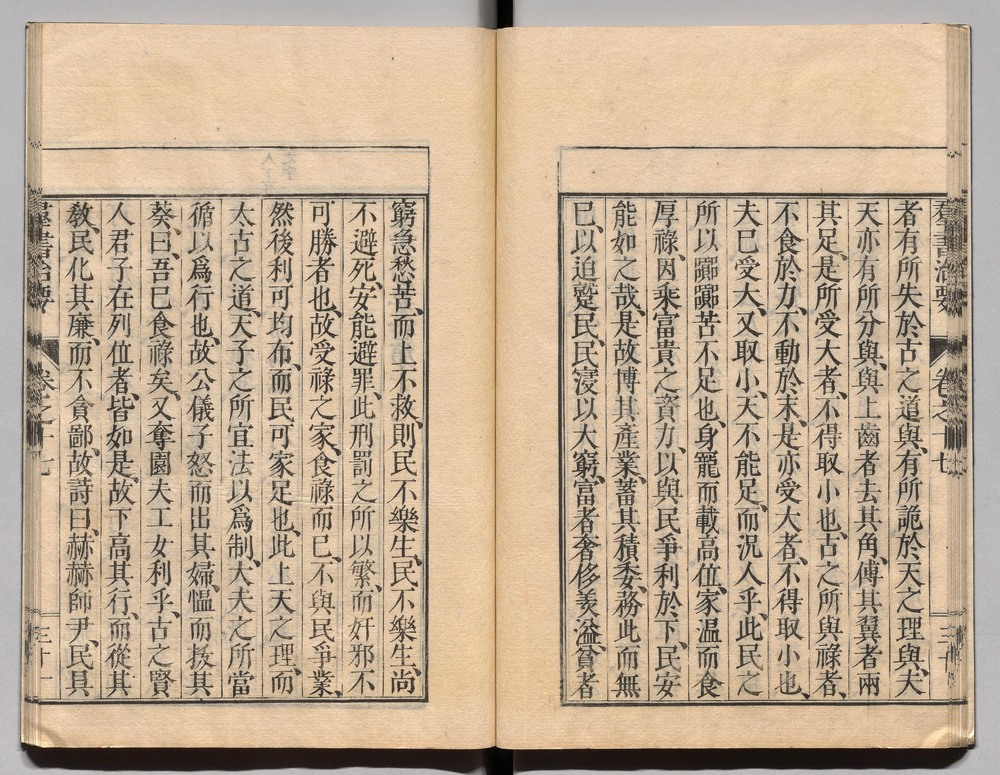 羣書治要 卷之十七
者有所失於古之道與、有所詭於天之理與、夫
天亦有所分與、與上齒者去其角、傅其翼者兩
其足、是所受大者、不得取小也、古之所與祿者、
不食於力、不動於末、是亦受大者、不得取小也、
夫已受大、又取小、天不能足、而況人乎、此民之
所以囂囂苦不足也、身寵而載高位、家温而食
厚祿、因乘富貴之資力、以與民爭利於下、民安
能如之哉、是故博其產業、蓄其積委、務此而無
已、以迫蹵民、民寖以大窮、富者奢侈羨溢、貧者
窮急愁苦、而上不救、則民不樂生、民不樂生、尚
不避死、安能避罪、此刑罰之所以繁、而奸邪不
可勝者也、故受祿之家、食祿而已、不與民爭業、
然後利可均布、而民可家足也、此上天之理、而
太古之道、天子之所宜法以爲制、大夫之所當
循以爲行也、故公儀子怒而出其婦、慍而拔其
葵、曰、吾已食祿矣、又奪園夫工女利乎、古之賢
人君子在列位者、皆如是、故下高其行、而從其
敎、民化其廉、而不貪鄙、故詩曰、赫赫師尹、民具
羣書治要 卷之十七 三十一